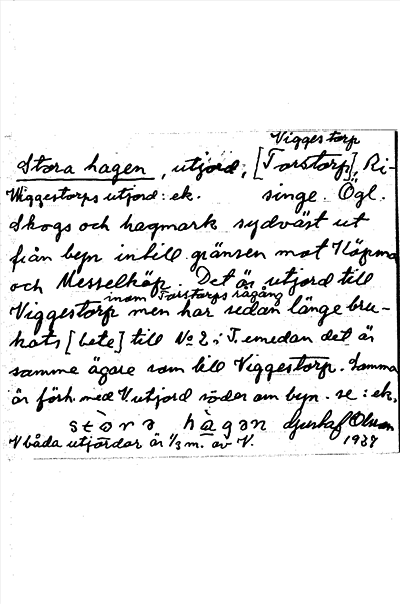 Viggestorp
Stora hagen, utjord, [Torstorp], Ri-
Wiggestorps utjord: ek. singe. Ögl.
Skogs och hagmark sydväst ut
från byn intill gränsen mot Köpma
och Messelköp. Det är utjord till
inom Torstorps rågång
Viggestorp men har sedan länge bru-
kats [bete] till No 2 i T. emedan det är
samme ägare som till Viggestorp. Samma
är förh. med V. utjord söder om byn. se: ek.
Olsson
V båda utjordar är 1/3 m. av V. 1937